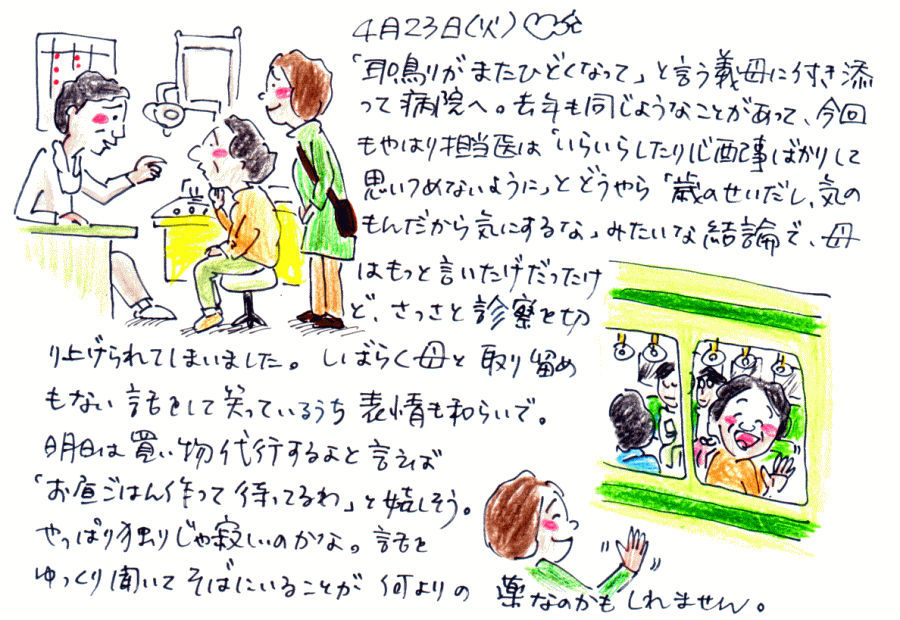 4月23日(火)
「耳鳴りがまたひどくなって」と言う義母に付き添
って病院へ。去年も同じようなことがあって、今回
もやはり担当医は「いらいらしたり心配事ばかりして
思いつめないように」とどうやら「歳のせいだし、気の
もんだから気にするな」みたいな結論で、母
はもっと言いたげだったけ
ど、さっさと診察を切
り上げられてしまいました。しばらく母と取り留め
もない話をして笑っているうち表情も和らいで。
明日は買い物代行するよと言えば
「お昼ごはん作って待ってるわ」と嬉しそう。
やっぱり独りじゃ寂しいのかな。話を
ゆっくり聞いてそばにいることが何よりの薬なのかもしれません。